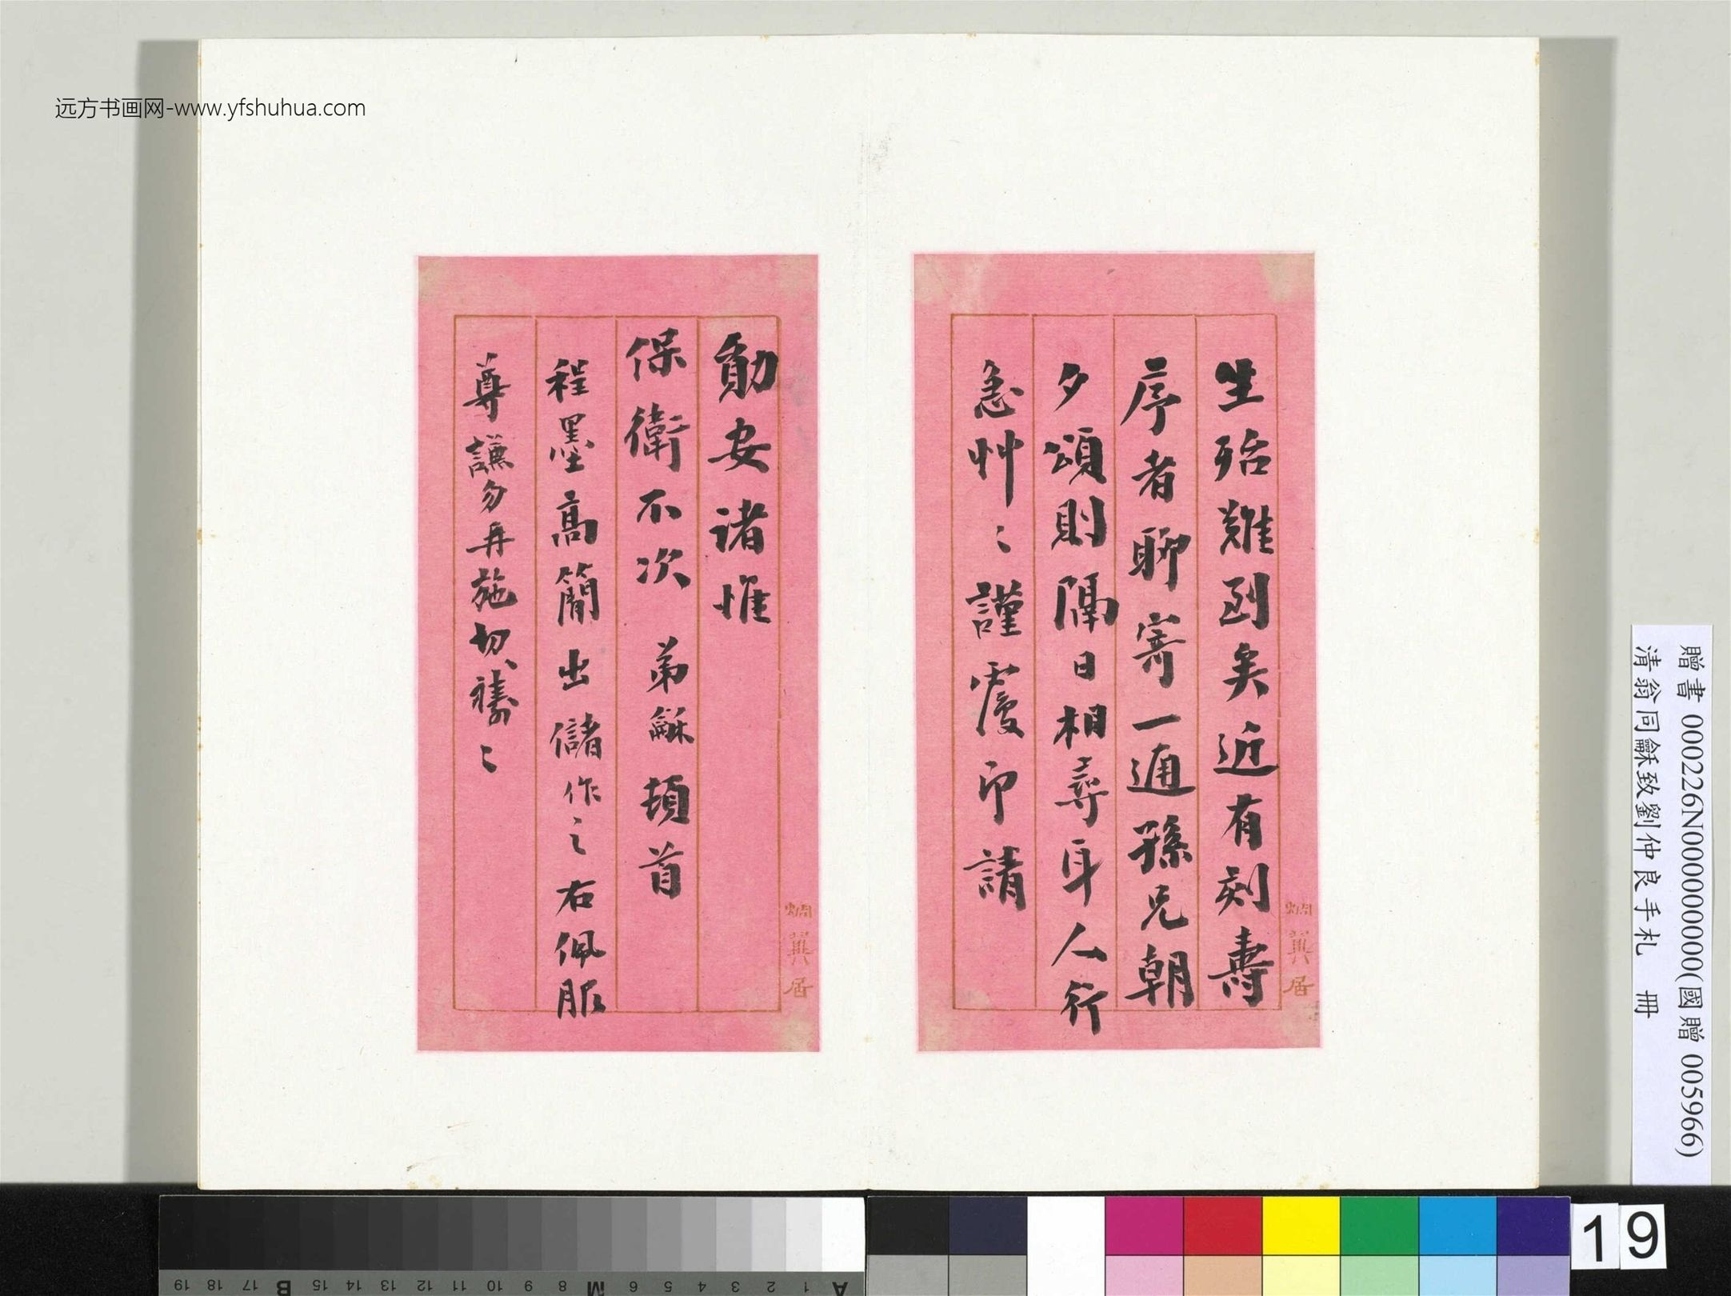 远方书画网-www.yfshuhua.com
生殆難到矣近有刻壽
序者聊寄一通孫兄朝
夕頌則隔日相尋耳人行
急艸〻謹覆即請
勛安諸惟
保衛不次 弟龢頓首
程墨高簡出儲作之右佩服
尊謙勿再施切禱〻
翼居
翼居
贈書 000226N000000000(國贈 005966)
清翁同龢致劉仲良手札 冊
19
A 1 2 3 4 5 6 M 8 9 10 11 12 13 14 15 B 17 18 19